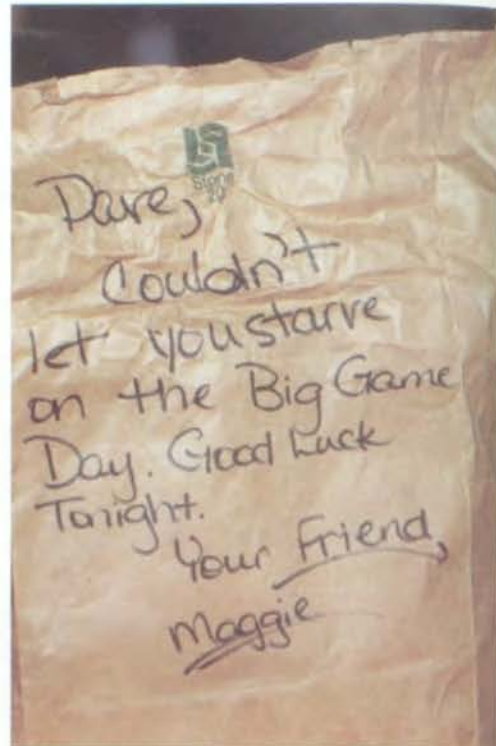 Stone
Dave,
Couldn't
let you starve
on the Big Game
Day. Good Luck
Tonight.
Your Friend,
Maggie